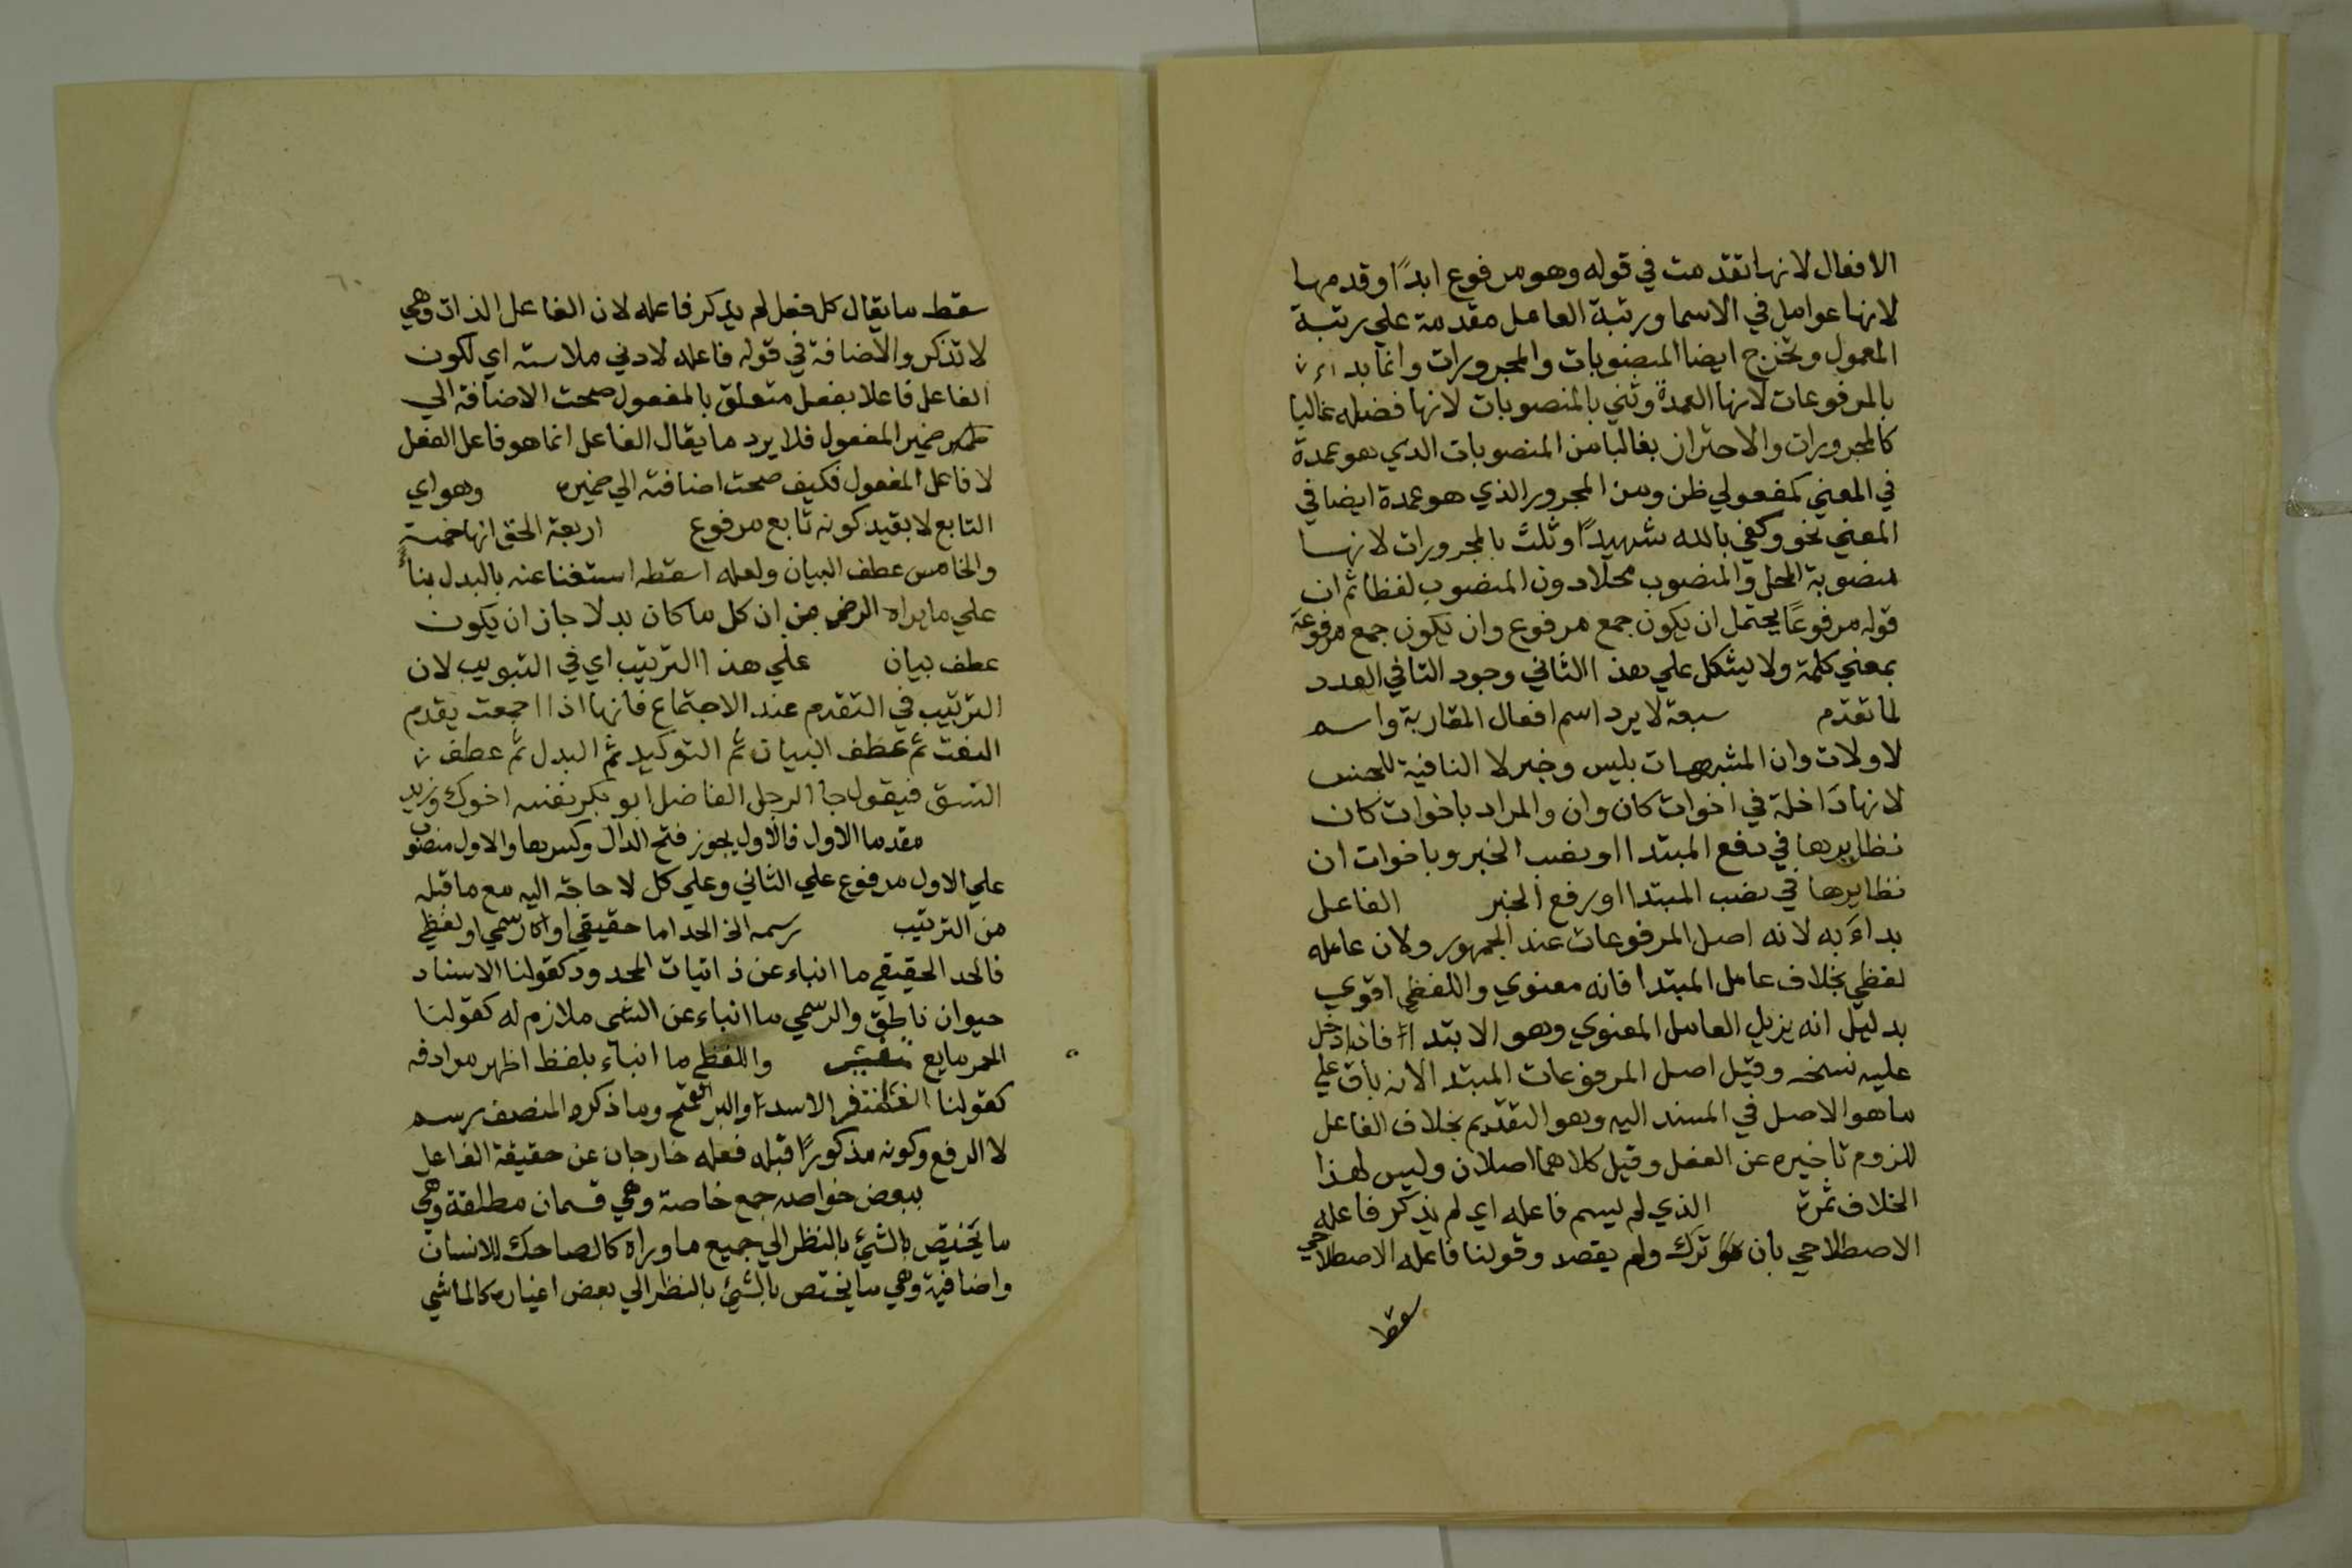 الافعال لانها تقدمت في قوله وهو مرفوع ابدًا وقدمها
لانها عوامل في الاسما ورتبة العامل مقدمة علي رتبة
المعمول وتخرج ايضا المنصوبات والمجرورات وانما بداء
بالمرفوعات لانها العمدة وثني بالمنصوبات لانها فضله غالبا
كالمجرورات والاحتراز بغالبا من المنصوبات الدي هو عمدة
في المعني كمفعولي ظن ومن المجرور الذي هو عمدة ايضا في
المعني نحو وكفي بالله شهيدًا وثلث بالمجرورات لانها
منصوبة المحل والمنصوب محلا دون المنصوب لفظا ثم ان
قوله مرفوعًا يحتمل ان يكون جمع مرفوع وان يكون جمع مرفوعة
بمعني كلمة ولا يشكل علي هذا الثاني وجود التا في العدد
لما تقدم سبعة لا يرد اسم افعال المقاربة واسم
لا ولات وان المشبهات بليس وخبر لا النافية للجنس
لانها داخلة في اخوات كان وان والمراد باخوات كان
نظايرها في رفع المبتدا او نصب الخبر وباخوات ان
نظايرها في نصب المبتدا او رفع الخبر الفاعل
بداء به لانه اصل المرفوعات عند الجمهور ولان عامله
لفظي بخلاف عامل المبتدا فانه معنوي واللفظي اقوي
بدليل انه يزيل العامل المعنوي وهو الابتداء فاذا دخل
عليه نسخه وقيل اصل المرفوعات المبتدا لانه باق علي
ما هو الاصل في المسند اليه وهو التقديم بخلاف الفاعل
للزوم تاخيره عن الفعل وقيل كلاهما اصلان وليس لهذا
الخلاف ثمرة الذي لم يسم فاعله اي لم يذكر فاعله
الاصطلاحي بان ترك ولم يقصد وقولنا فاعله الاصطلاحي
سقط
٦٠
سقط ما يقال كل فعل لم يذكر فاعله لان الفاعل الذات وهي
لا تذكر والاضافة في قوله فاعله لادني ملاسته اي لكون
الفاعل فاعلا بفعل متعلق بالمفعول صحت الاضافة الي
ضمير المفعول فلا يرد ما يقال الفاعل انما هو فاعل الفعل
لا فاعل المفعول فكيف صحت اضافته الي ضميره وهو اي
التابع لا بقيد كونه تابع مرفوع اربعة الحق انها خمسة
والخامس عطف البيان ولعله اسقطه استغنا عنه بالبدل بناءً
علي ما يراه الرضي من ان كل ما كان بدلا جاز ان يكون
عطف بيان علي هذا الترتيب اي في التبويب لان
الترتيب في التقدم عند الاجتماع فانها اذا اجمعت يقدم
النعت ثم عطف البيان ثم التوكيد ثم البدل ثم عطف
النسق فيقول جا الرجل الفاضل ابو بكر نفسه اخوك وزيد
مقدما الاول فالاول يجوز فتح الدال وكسرها والاول منصوب
علي الاول مرفوع علي الثاني وعلي كل لا حاجة اليه مع ما قبله
من الترتيب رسمه الخ الحد اما حقيقي او رسمي او لفظي
فالحد الحقيقي ما انباء عن ذاتيات المحدود كقولنا الاسناد
حيوان ناطق والرسمي ما انباء عن الشي ملازم له كقولنا
الخمر مايع واللفظي ما انباء بلفظ اظهر مرادفه
كقولنا الغضنفر الاسد او البر القمح وما ذكره المنصف رسم
لا الرفع وكونه مذكورًا قبله فعله خارجان عن حقيقة الفاعل
ببعض خواصه جمع خاصة وهي قسمان مطلقة وهي
ما يختص بالشئ بالنظر الي جميع ما وراه كالضاحك للانسان
واضافية وهي ما يختص بالشئ بالنظر الي بعض اغياره كالماشي